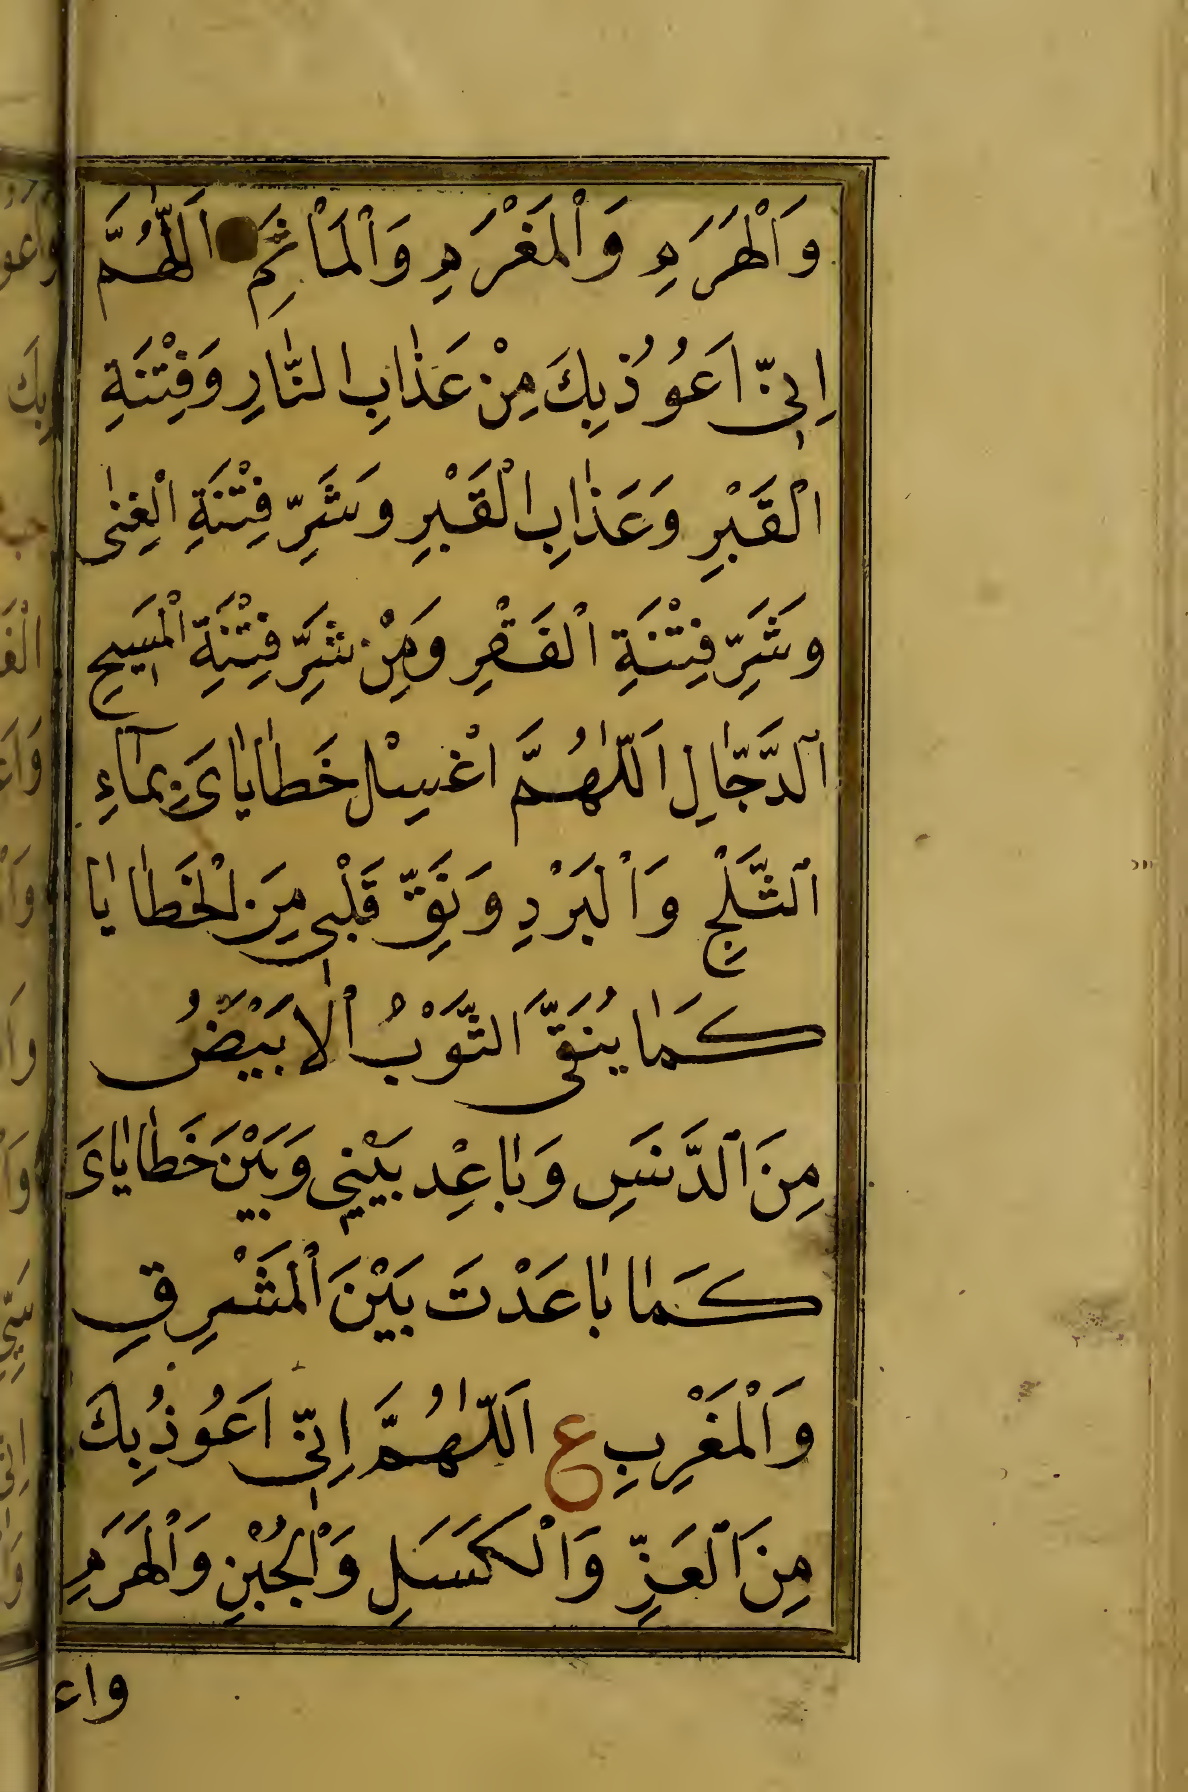 وَالْهَرَمِ وَالْمَغْرَمِ وَالْمَاْثَمِ اَللّٰهُمَّ
اِنِّىٓ اَعُوُذُ بِكَ مِنْ عَذٰابِ النّٰارِ وَفِتْنَةِ
الْقَبْرِ وَعَذٰابِ الْقَبْرِ وَشَرِّ فِتْنَةِ الْغِنٰى
وَشَرِّ فِتْنَةِ الْفَقْرِ وَمِنْ شَرِّ فِتْنَةِ الْمَسِيحِ
الدَّجّٰالِ اَللّٰهُمَّ اغْسِلْ خَطٰايٰاىَ بِمَآءِ
الثَّلْجِ وَالْبَرْدِ وَنَقِّ قَلْبِى مِنَ الْخَطٰايٰا
كَمٰا يُنَقَّى الثَّوْبُ الْاَبْيَضُ
مِنَ الدَّنَسِ وَبٰاعِدْ بَيْنِي وَبَيْنَ خَطٰايٰاىَ
كَمٰا بٰاعَدْتَ بَيْنَ الْمَشْرِقِ
وَالْمَغْرِبِ ع اَللّٰهُمَّ اِنِّى اَعُوُذُ بِكَ
مِنَ الْعَجْزِ وَالْكَسَلِ وَالْجُبْنِ وَالْهَرَمِ
واع